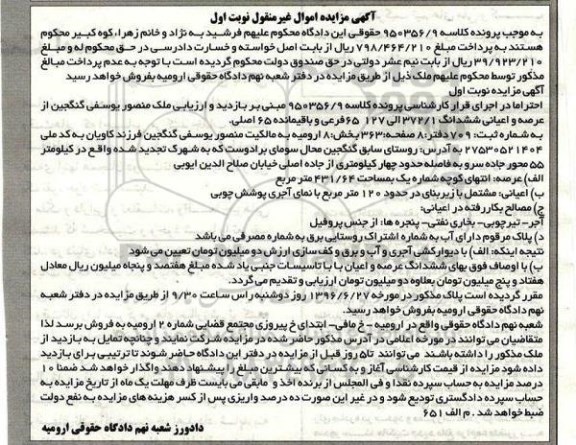 آگهی مزایده اموال غیرمنقول نوبت اول
به موجب پرونده کلاسه ۹۵۰۳۵۶/۹ حقوقی این دادگاه محکوم علیهم فرشید به نژاد و خانم زهرا، کوه کبیر محکوم
هستند به پرداخت مبلغ ۷۹۸/۴۶۴/۲۱۰ ریال از بابت اصل خواسته و خسارت دادرسی در حق محکوم له و مبلغ
۳۹/۹۲۳/۲۱۰ ریال از بابت نیم عشر دولتی در حق صندوق دولت محکوم گردیده است با توجه به عدم پرداخت مبالغ
مذکور توسط محکوم علیهم ملک ذیل از طریق مزایده در دفتر شعبه نهم دادگاه حقوقی ارومیه بفروش خواهد رسید
آگهی مزایده نوبت اول
احتراما در اجرای قرار کارشناسی پرونده کلاسه ۹۵۰۳۵۶/۹ مبنی بر بازدید و ارزیابی ملک منصور یوسفی گنگجین از
عرصه و اعیانی ششدانگ ۳۷۲/۱ الی ۱۲۷ ۶۵فرعی و باقیمانده ۶۵ اصلی.
به شماره ثبت: ۷۰۹ دفتر: ۸ صفحه: ۳۶۳ بخش: ۸ ارومیه به مالکیت منصور یوسفی گنگجین فرزند کاویان به کد ملی
۲۷۵۳۰۵۲۱۴۰۴ به آدرس: روستای سابق گنگجین محال سومای برادوست که به شهرک تجدید شده واقع در کیلومتر
۵۵ محور جاده سرو به فاصله حدود چهار کیلومتری از جاده اصلی خیابان صلاح الدین ایوبی
الف) عرصه: انتهای کوچه شماره یک بمساحت ۴۳۱/۶۴ متر مربع
ب) اعیانی: مشتمل با زیربنای در حدود ۱۲۰ متر مربع با نمای آجری پوشش چوبی
ج) مصالح بکاررفته در اعیانی:
آجر- تیرچوبی- بخاری نفتی- پنجره ها: از جنس پروفیل
د) پلاک مرقوم دارای آب به شماره اشتراک روستایی برق به شماره مصرفی می باشد
نتیجه اینکه: الف) با دیوارکشی آجری و آب و برق و کف سازی ارزش دو میلیون تومان تعیین می شود
ب) با اوصاف فوق بهای ششدانگ عرصه و اعیان با تاسیسات جنبی یاد شده مبلغ هفتصد و پنجاه میلیون ریال معادل
هفتاد و پنج میلیون تومان بعلاوه دو میلیون تومان ارزیابی و تقدیم می گردد.
مقرر گردیده است پلاک مذکور در مورخه ۱۳۹۶/۶/۲۷ روز دوشنبه راس ساعت ۹/۳۰ از طریق مزایده در دفتر شعبه
نهم دادگاه حقوقی ارومیه بفروش خواهد رسید.
شعبه نهم دادگاه حقوقی واقع در ارومیه - خ مافی- ابتدای خ پیروزی مجتمع قضایی شماره ۲ ارومیه به فروش برسد لذا
متقاضیان می توانند در مورخه اعلامی در آدرس مذکور حاضر شده در مزایده شرکت نمایند و چنانچه تمایل به بازدید از
ملک مذکور را داشته باشند می توانند تا۵ روز قبل از مزایده در دفتر این دادگاه حاضر شوند تا ترتیبی برای بازدید
داده شود مزایده از قیمت کارشناسی آغاز و به کسانی که بیشترین مبلغ را پیشنهاد دهند واگذار خواهد شد ضمنا ۱۰
درصد مزایده به حساب سپرده نقدا و فی المجلس از برنده اخذ و مابقی می بایست ظرف مهلت یک ماه از تاریخ مزایده به
حساب سپرده دادگستری تودیع شود و در غیر این صورت ده درصد واریزی پس از کسر هزینه های مزایده به نفع دولت
ضبط خواهد شد . م الف ۶۵۱
دادورز شعبه نهم دادگاه حقوقی ارومیه